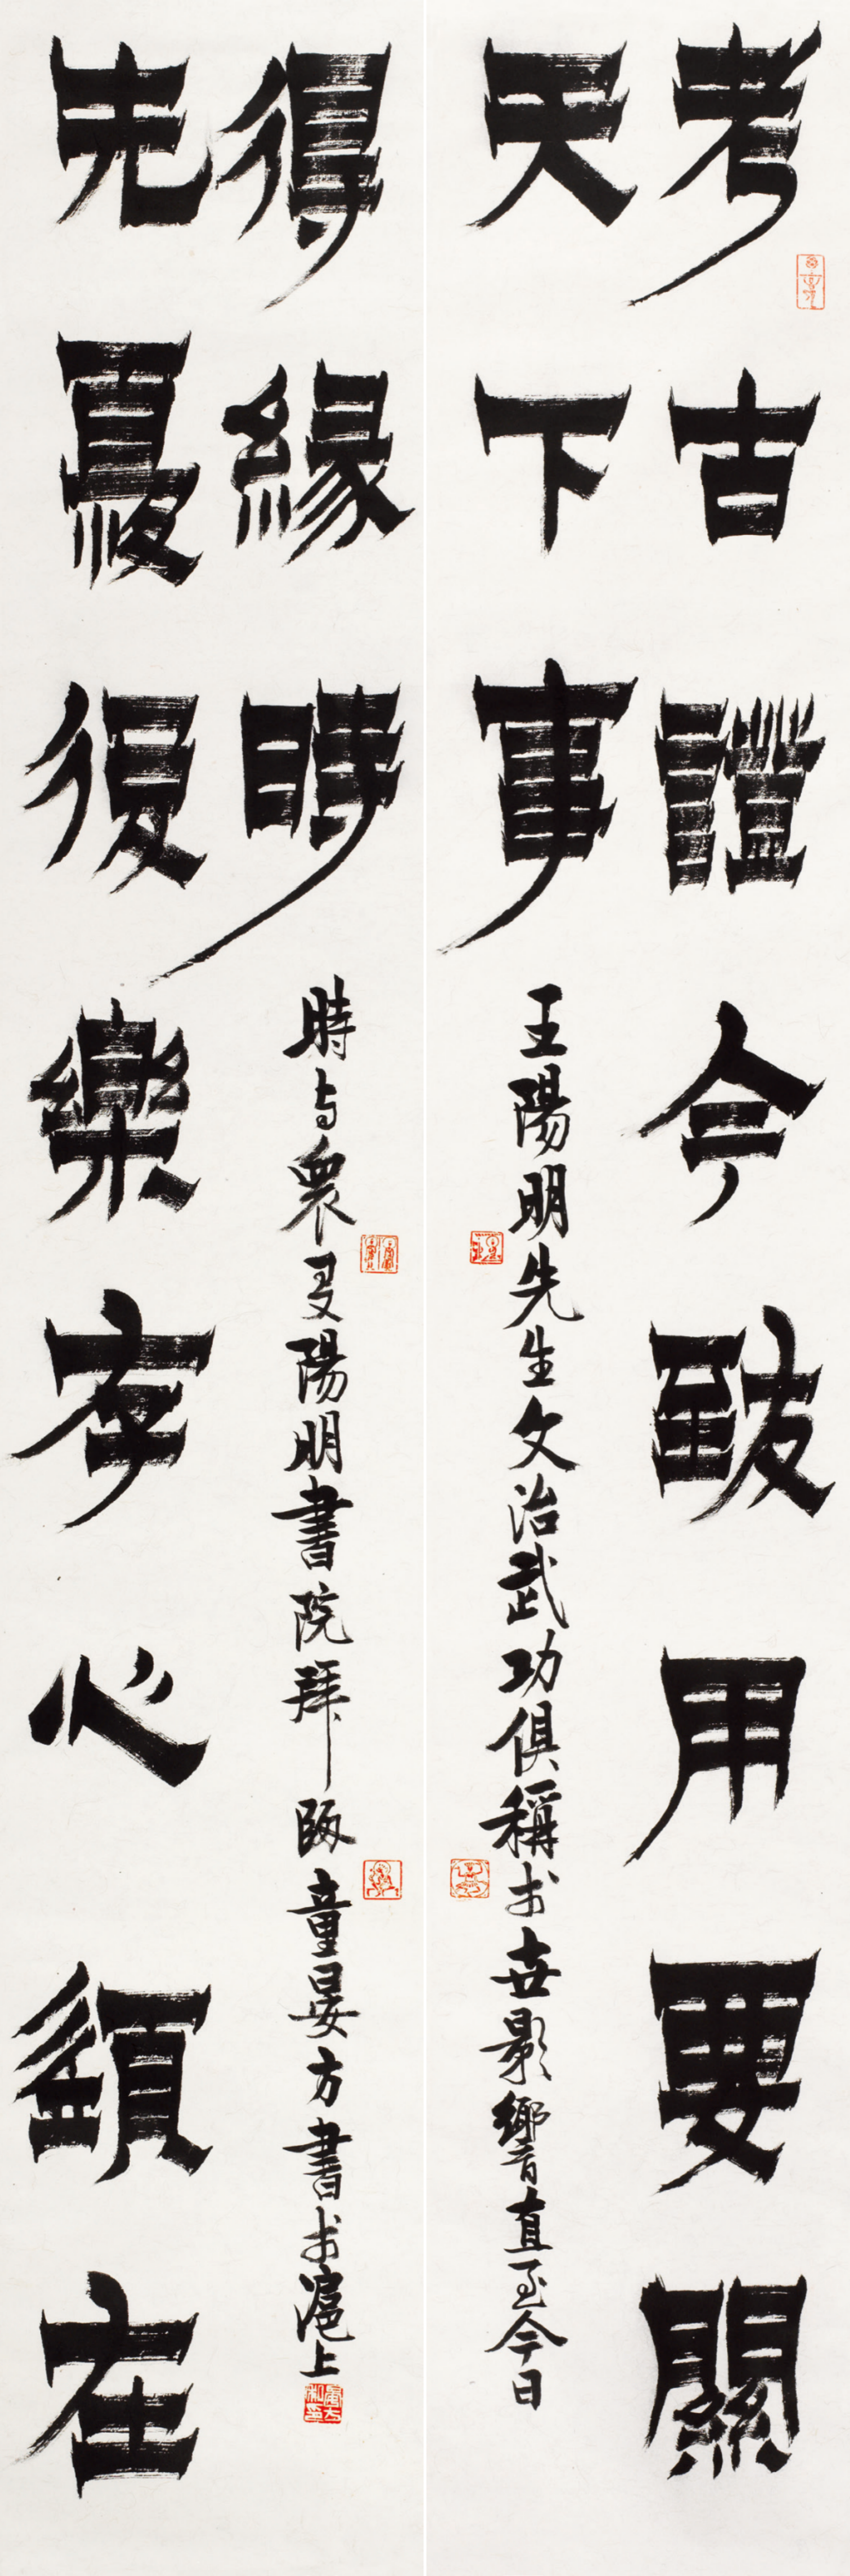 考古證今致用要關
天下事
王陽明先生文治武功俱稱於世影響直至今日
先憂後樂存心須在
得緣時
時与眾友陽明書院拜師童晏方書於滬上